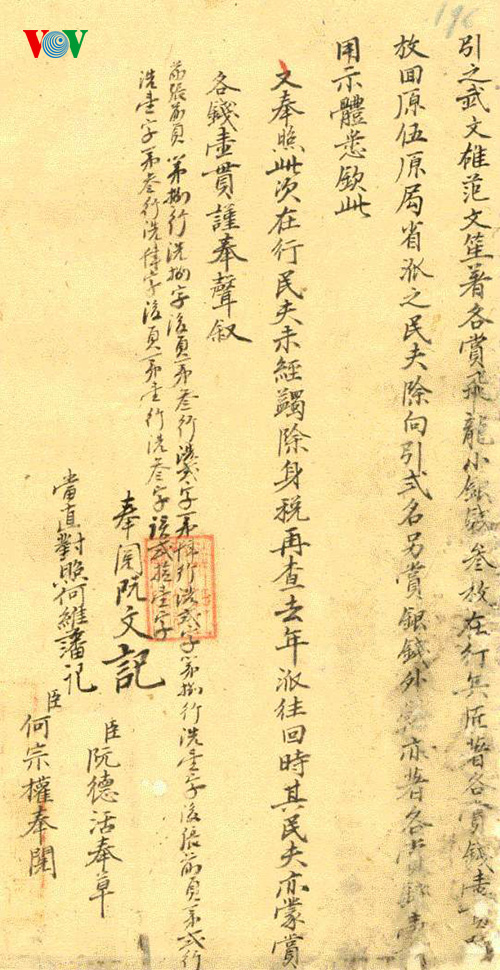 VOV
196
引之武文雄范文笙著各賞飛龍小銀錢叁放在行兵匠著各賞錢壹
放回原伍原局省派之民夫除向引貳名另賞銀錢外亦著各賞錢壹
用示體悉欽此
又奉照此次在行民夫未經蠲除身稅再查去年派往回時其民夫亦蒙賞
各錢壹貫謹奉聲叙
前張前頁第捌行洗捌字後頁第叁行洗貳字第行洗貳字第捌行洗壹字後張前頁第貳行
洗壹字第叁行洗字後頁第壹行洗叁字該貳拾壹字
奉閱阮文記
當直對照何維藩記
臣阮德活奉草
臣何宗權奉閱